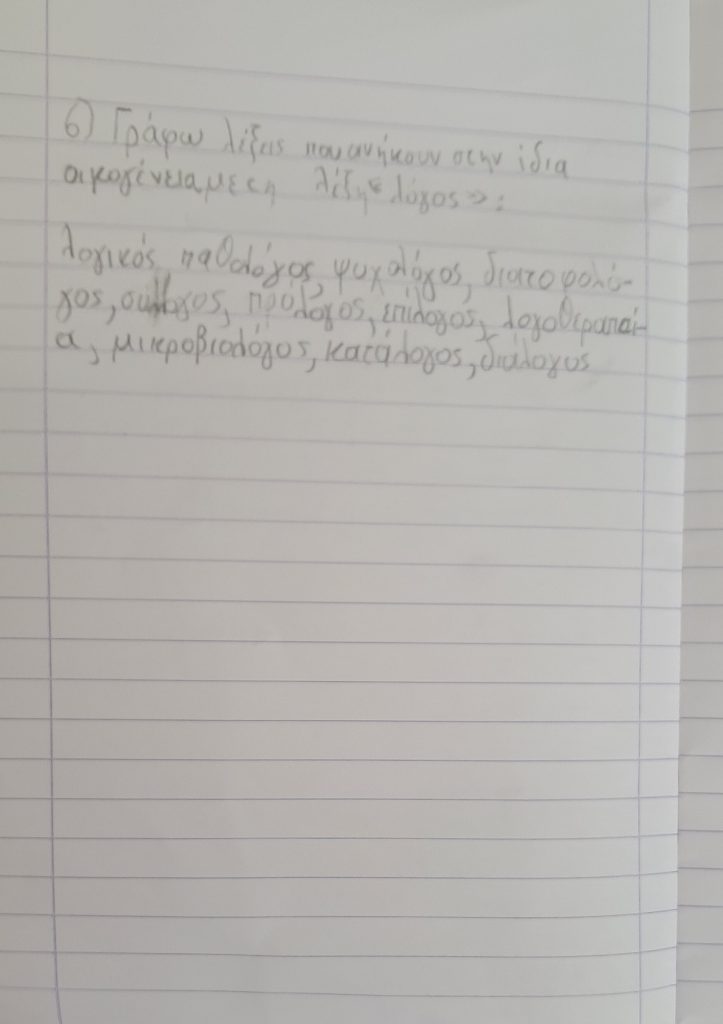 6) Γράφω λέξεις που ανήκουν στην ίδια
οικογένεια με τη λέξη «λόγος»:
λογικός, παθολόγος, ψυχολόγος, διατοφολό-
γος, σύλλογος, πρόλογος, επίλογος, λογοθεραπεί-
α, μικροβιολόγος, κατάλογος, διάλογος